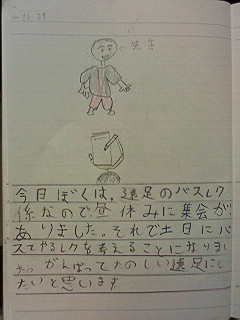 先生
今日ぼくは、遠足のバスレク
係なので昼休みに集会が
ありました。それで土日にバ
スでやるレクを考えることになりまし
た。がんばってたのしい遠足にし
たいと思います